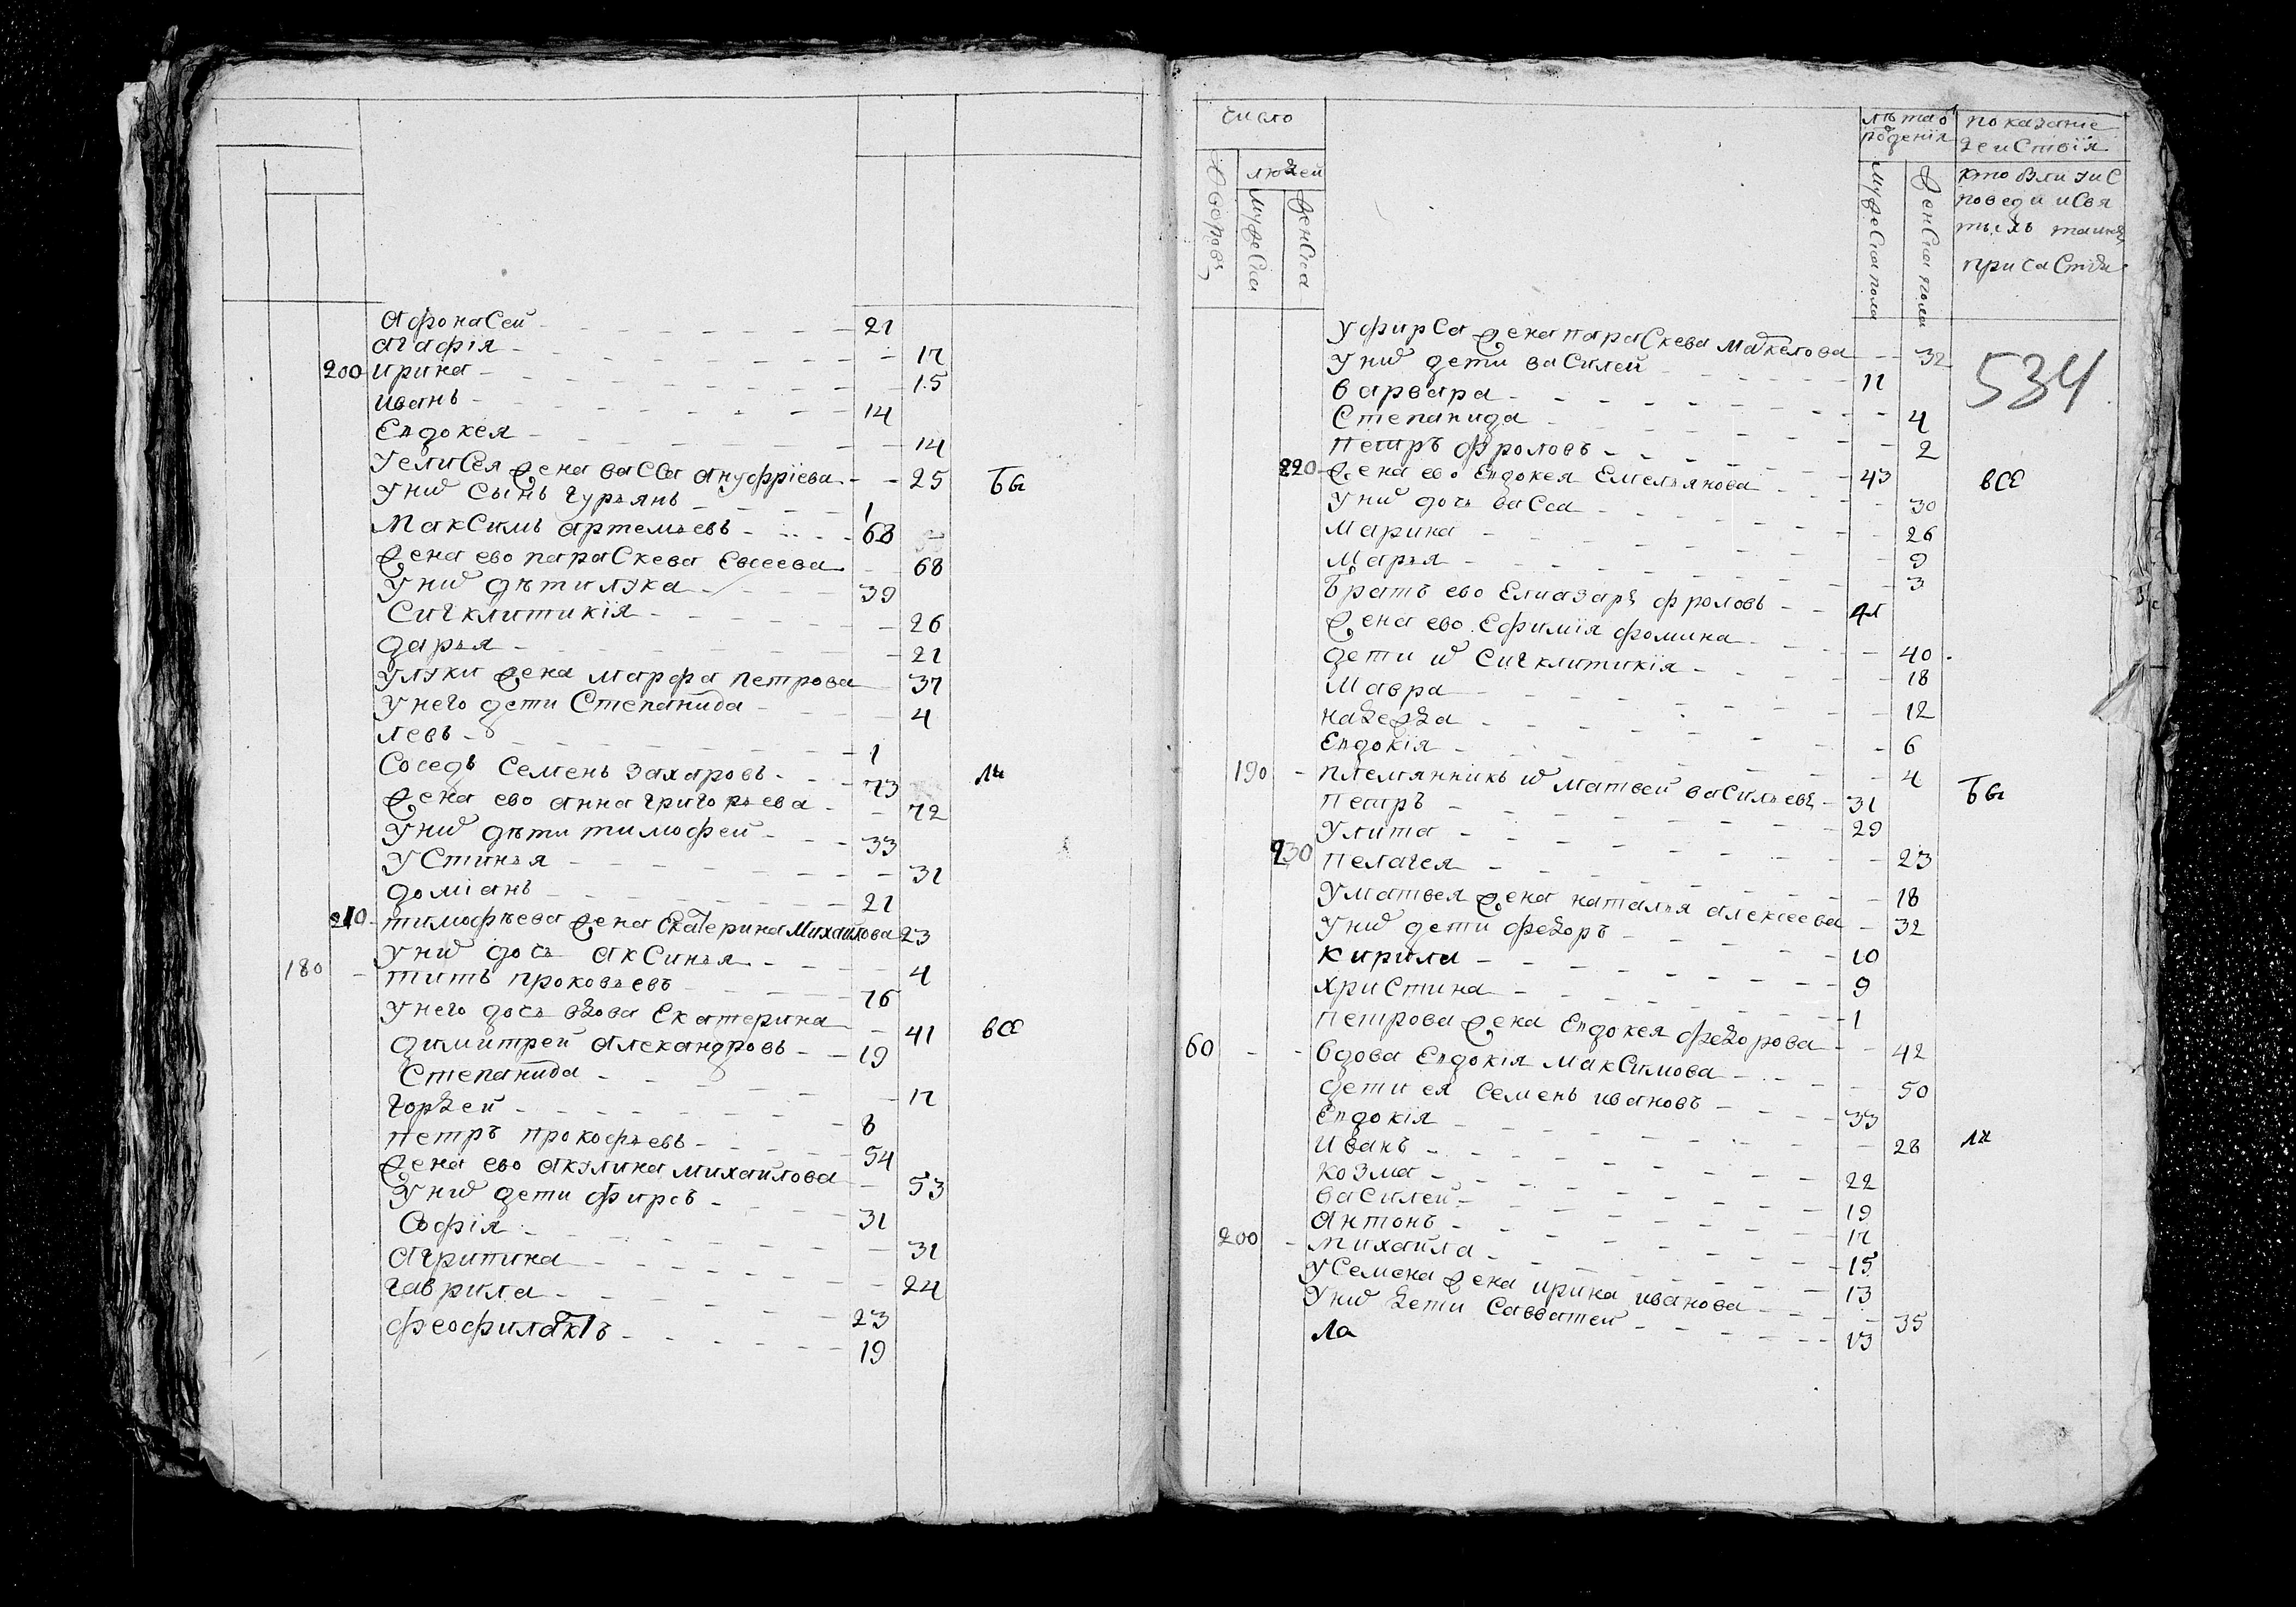 Афонасей 21
Агафїя 17
200 Ирина 15
Иванъ 14
Евдокея 14
У елисея жена васса ануфрїева 25 Бы
У них сынъ гурьянъ 1
Максимъ артемьевъ 68
Жена ево параскева Евсеева 68
У них дѣти лука 39
Сигклитикїя 26
Дарья 21
У луки жена марфа петрова 37
У него дети Степанида 4
Левъ 1
Соседъ Семенъ захаровъ 73 ли
Жена ево анна григорьева 72
У них дѣти тимофей 33
Устинья 31
Домїанъ 21
210 тимофѣева жена Екатерина Михаилова 23
У них дочь Аксинья 4
180 титъ прокофьевъ 76
У него дочь вдова Екатерина 41 все
Димитрей Александровъ 19
Степанида 17
Гордей 8
Петръ прокофьевъ 54
Жена ево акулина михаилова 53
У них дети фирсъ 31
Софїя 31
Агрипина 24
Гаврила 23
Феофилактъ 19
Число
людей
Дворовъ
мужеска
женска
лѣта от рождения
мужеска пола
женска пола
показанїе
действїя
кто был у ис
поведи и свя
тыхъ таинъ
причастия
У фирса жена параскева маркелова 32
534
У них дети василей 11
варвара 4
Степанида 2
Петръ фроловъ 43
220 Жена ево Евдокея Емельянова 30 все
У них дочь васса 26
Марина 9
Марья 3
Братъ ево Елиазаръ фроловъ 41
Жена ево Ефимїя фомина 40
Дети их Сигклитикїя 18
Мавра 12
Надежда 6
Евдокїя 4
190 племянникъ их матвей васильевъ 31 Бы
Петръ 29
Улита 23
230 Пелагея 18
У матвея жена наталья алексеева 32
У них дети федоръ 10
Кирила 9
Христина 1
Петрова жена Евдокея федорова 42
60 вдова Евдокїя Максимова 50
Дети ея Семенъ ивановъ 33
Евдокїя 28 ли
Иванъ 22
Козма 19
Василей 17
Антонъ 15
200 Михаила 13
У Семена жена ирина иванова 35
У них дети Савватей 13
ла